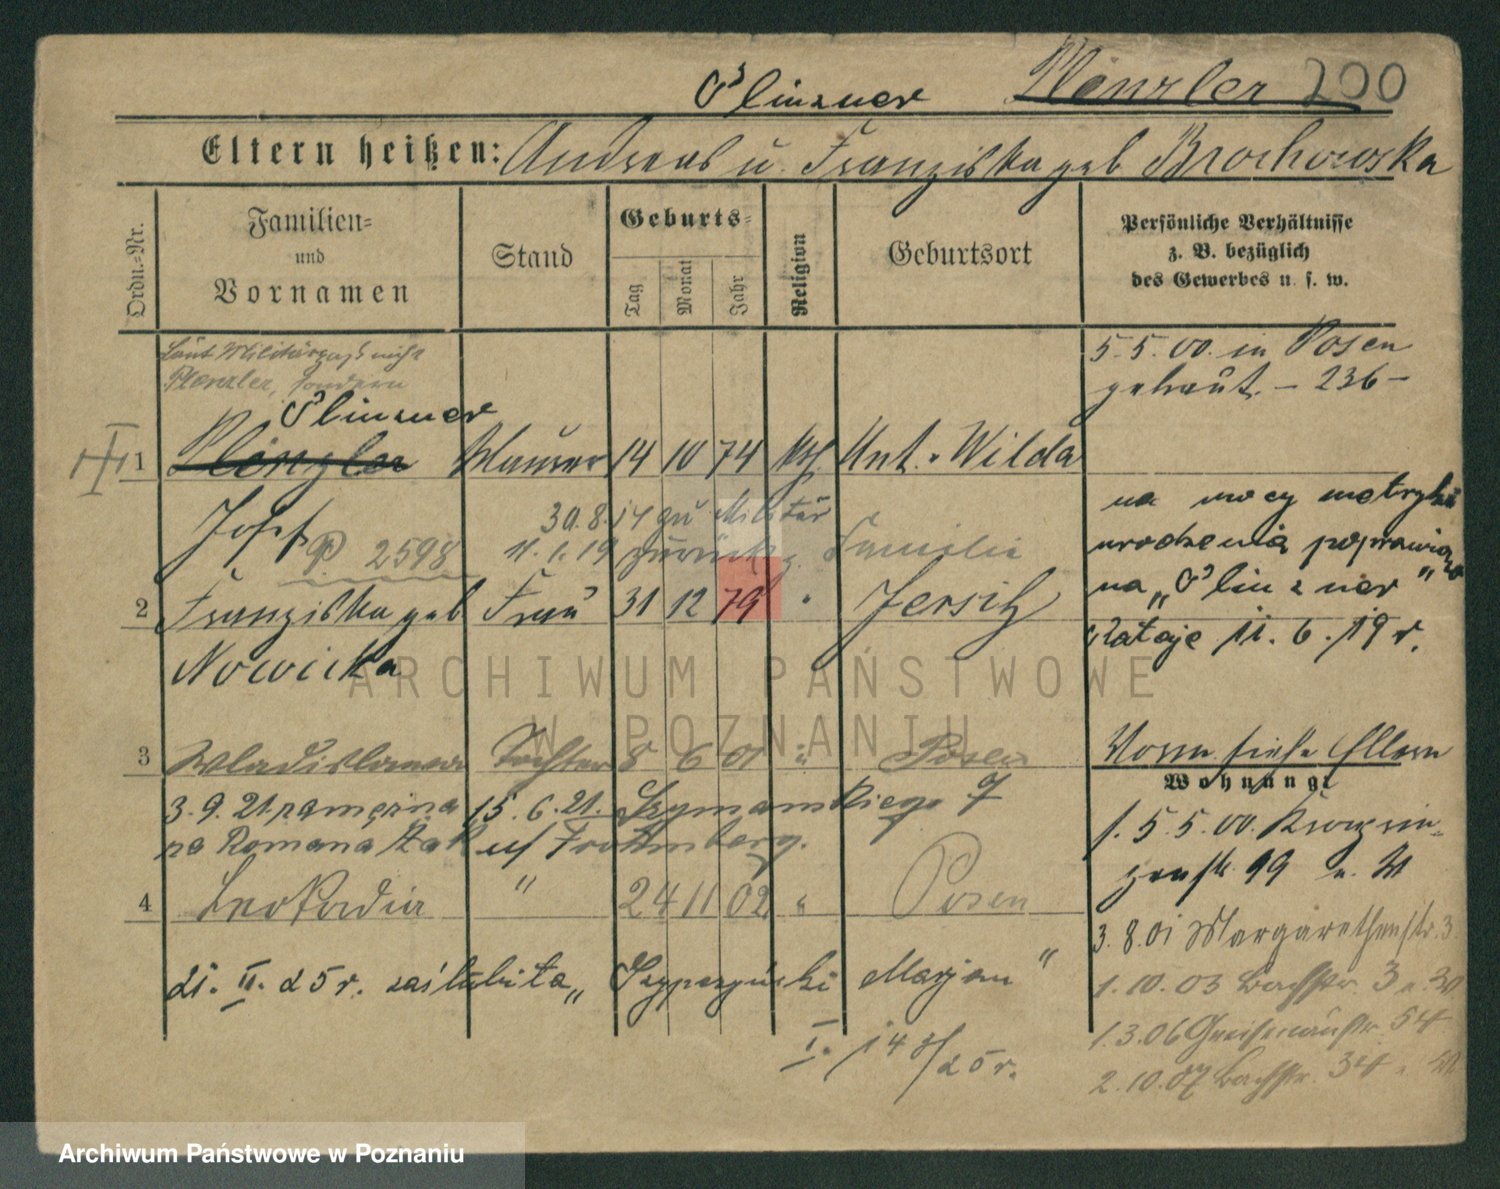 Plinzner Plenzler 200
Eltern heißen: Andreas u. Franziska geb Brochowska
Ordn.-Nr.
Familien- und Vornamen
Stand
Geburts-
Tag
Monat
Jahr
Religion
Geburtsort
Persönliche Verhältnisse
z. B. bezüglich
des Gewerbes u. s. w.
Laut Militärpaß nicht
Plenzler, sondern
Plinzner
5.5.00. in Posen
getraut. – 236 –
1 Plenzler Maurer 14 10 74 kth. Unt. Wilda
Josef
P 2598
30.8.14 zu Militär
11.1.19 zurück z. Familie
na mocy metryki
urodzenia poprawiono
na „Plinzner"
Rataje 11.6.19 r.
2 Franziska geb Frau 31 12 79 " Jersitz
Nowicka
3 Wladislawa Tochter 8 6 01 " Posen
3.9.21 zamężna 15.6.21. Szymanskiego 7
na Romana Rottenberg.
4 Leokadia " 24 11 02 " Posen
21. II. 25 r. zaślubiła „ Marjan "
I. 14 8/25 r.
Vorn siehe Eltern
Wohnung:
1. 5.5.00.
99 u. W
3.8.01 Margarethenstr. 3
1.10.03 Bachstr. 3 u. W
1.3.06 Gneisenaustr. 54
2.10.07 Bachstr. 34 u. W
ARCHIWUM PAŃSTWOWE
W POZNANIU
Archiwum Państwowe w Poznaniu